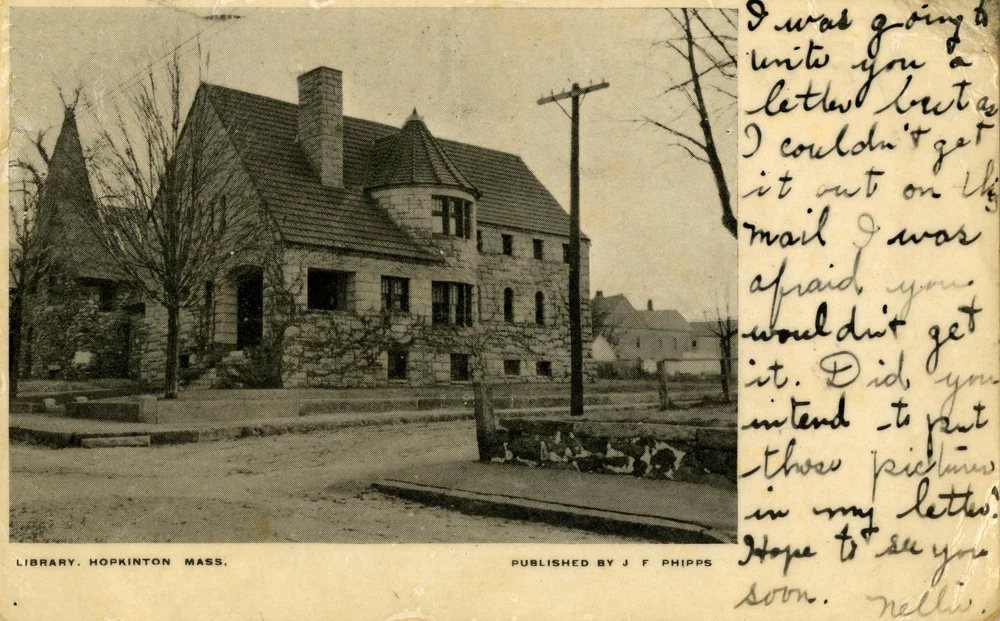 I was going to
write you a
letter but as
I couldn't get
it out on this
mail I was
afraid you
wouldn't get
it. Did you
intend to put
those pictures
in my letter.
Hope to see you
soon. Nellie.
LIBRARY, HOPKINTON MASS.
PUBLISHED BY J F PHIPPS